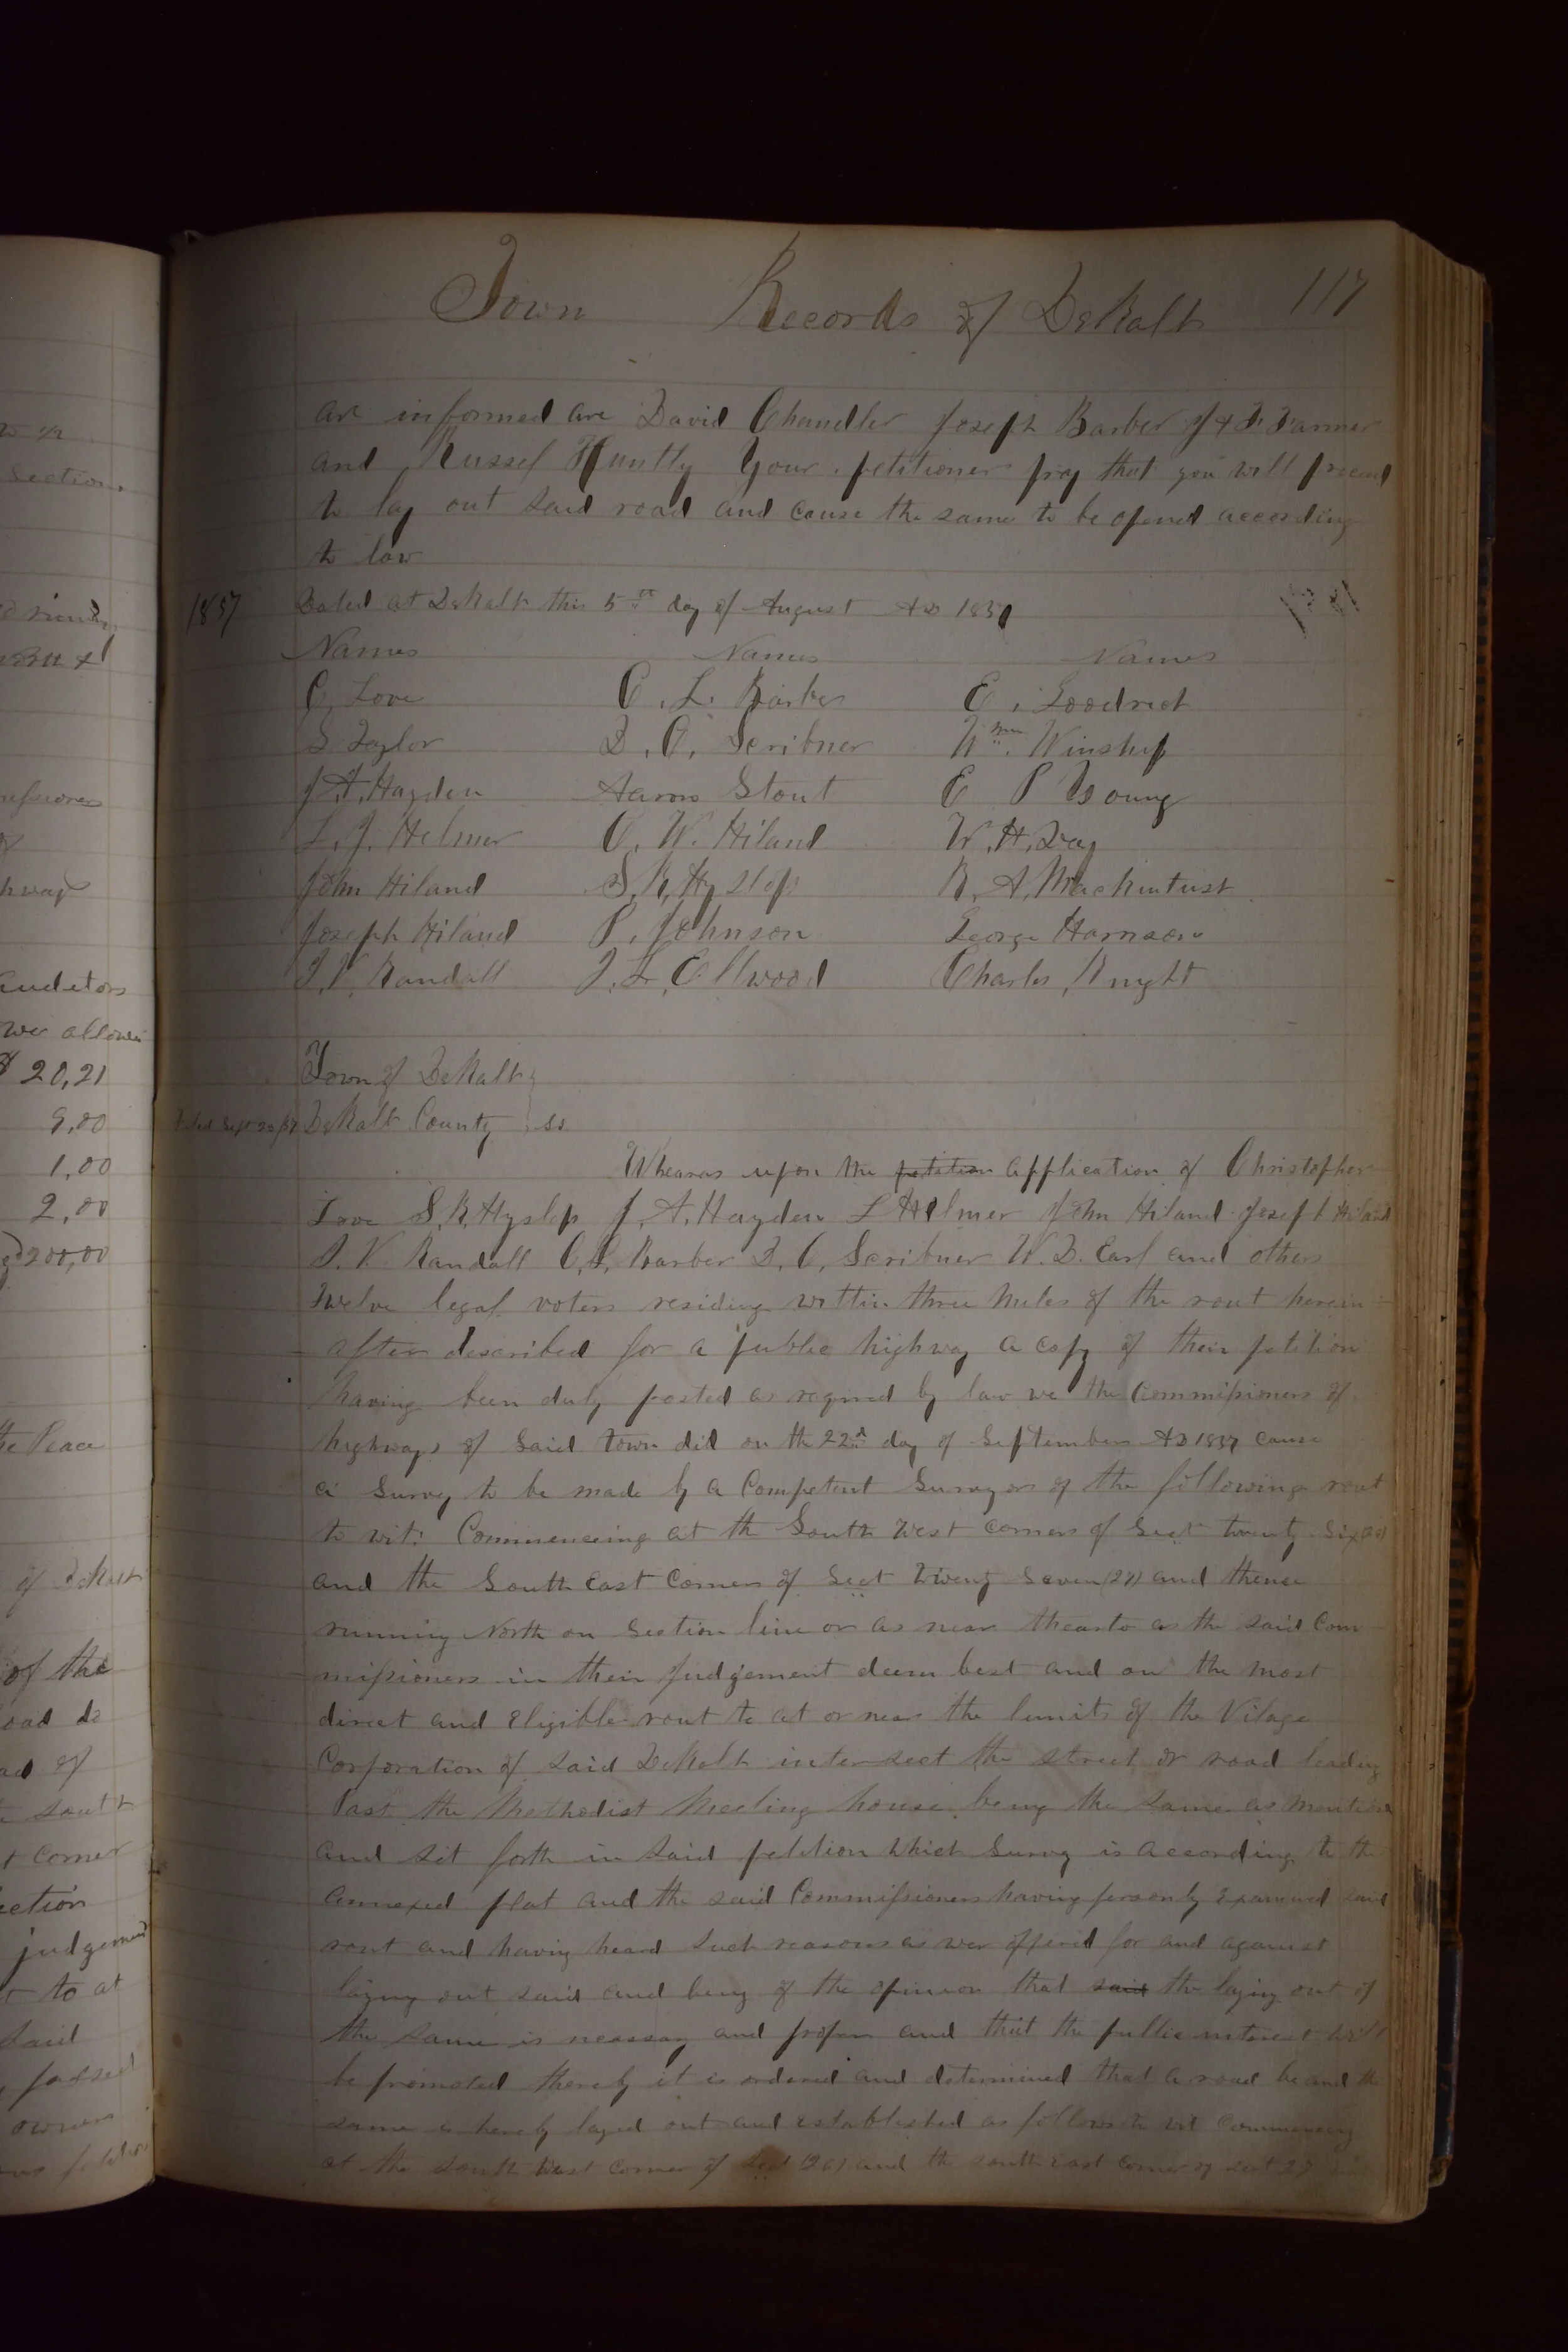 Town Records of DeKalb 117
are informed are David Chandler Joseph Barber J & D. Farmer
and Russel Huntly Your petitioners pray that you will proceed
to lay out said road and cause the same to be opened according
to law
Dated at DeKalb this 5th day of August AD 1857
1857
Names Names Names
C. Love C. L. Barber E. Goodrich
S Taylor D. C. Scribner Wm. Winship
J. A. Hayden Aaron Stout E P Young
L. J. Helmer C. W. Hiland W. H. Day
John Hiland S. K. Hyslop R. A. Mackintust
Joseph Hiland P. Johnson George Harrison
J. V. Randall J. L. Ellwood Charles Knight
Town of DeKalb
Filed Sept 23/57 DeKalb County ss
Wheareas upon the petition application of Christopher
Love S. K. Hyslop J. A. Hayden L Helmer John Hiland Joseph Hiland
J. V. Randall C. L. Barber D. C. Scribner W. D. Earl and others
Twelve legal voters residing within three miles of the rout herein
after described for a public highway a copy of their petition
having been duly posted as required by law we the Commissioners of
highways of Said Town did on the 22d day of September AD 1857 cause
a Survey to be made by a Competent Surveyor of the following rout
to wit: Commenceing at the South West corner of Sect twenty Six (26)
and the South East Corner of Sect Twenty Seven (27) and thence
running North on Section line or as near thearto as the said Com
missioners in their judgement deem best and on the most
direct and Eligible rout to at or near the limits of the Vilage
Corporation of said DeKalb intersect the street or road leading
Past the Methodist Meeting house being the same as mention
and set forth in said petition which Survey is according to the
annexed plat and the said Commissioners having personly examined said
rout and having heard such reasons as wer offered for and against
laying out said and being of the opinion that said the laying out of
the same is necessary and proper and that the public interest will
be promoted thereby it is ordered and determined that a road be and the
same is hereby layed out and established as follows to wit commencing
at the South West corner of Sect (26) and the south east corner of Sect 27
Section
auditors
wer allowed
$ 20,21
9,00
1,00
2,00
200,00
the Peace
of DeKalb
of the
road to
south
corner
ection
judgement
to at
said
passed
owners